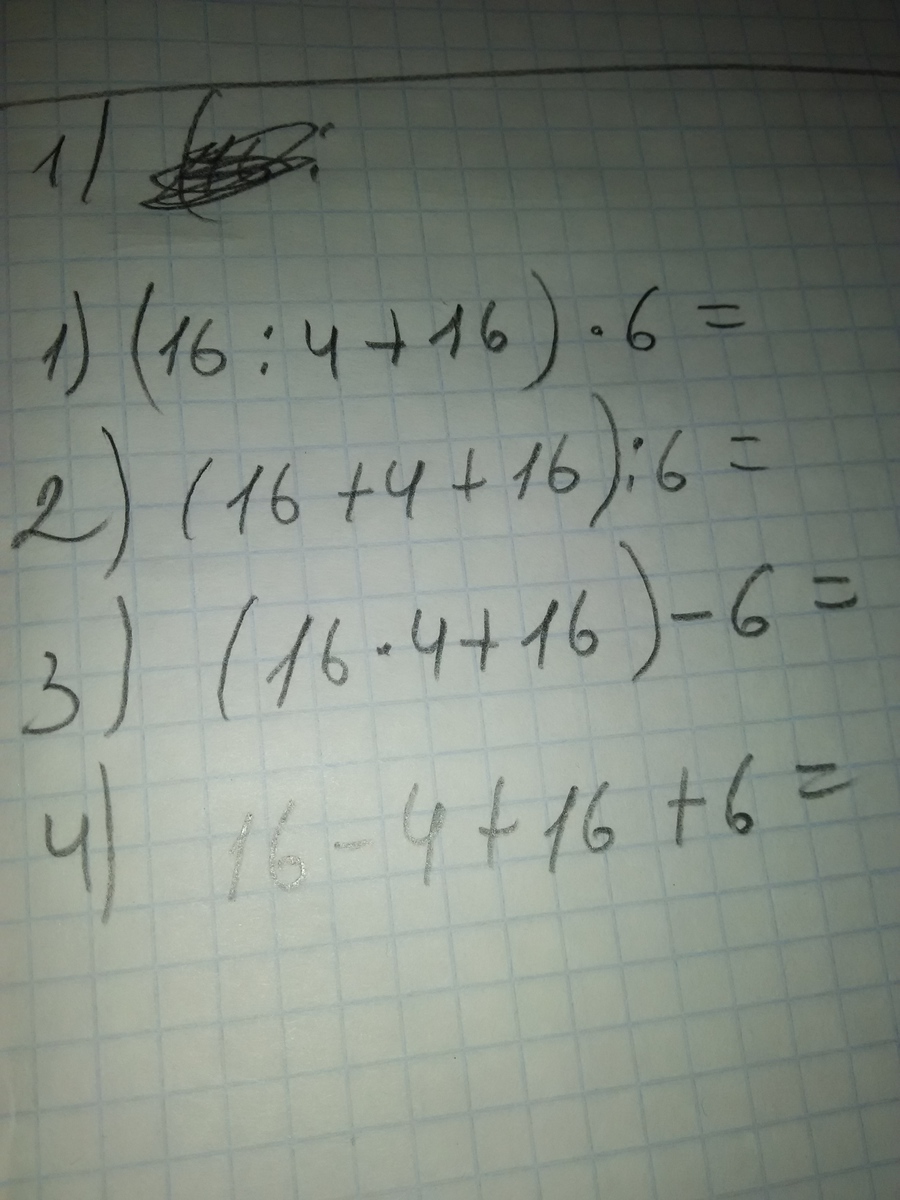 1)
1) (16 : 4 + 16) · 6 =
2) (16 + 4 + 16) : 6 =
3) (16 · 4 + 16) - 6 =
4) 16 - 4 + 16 + 6 =